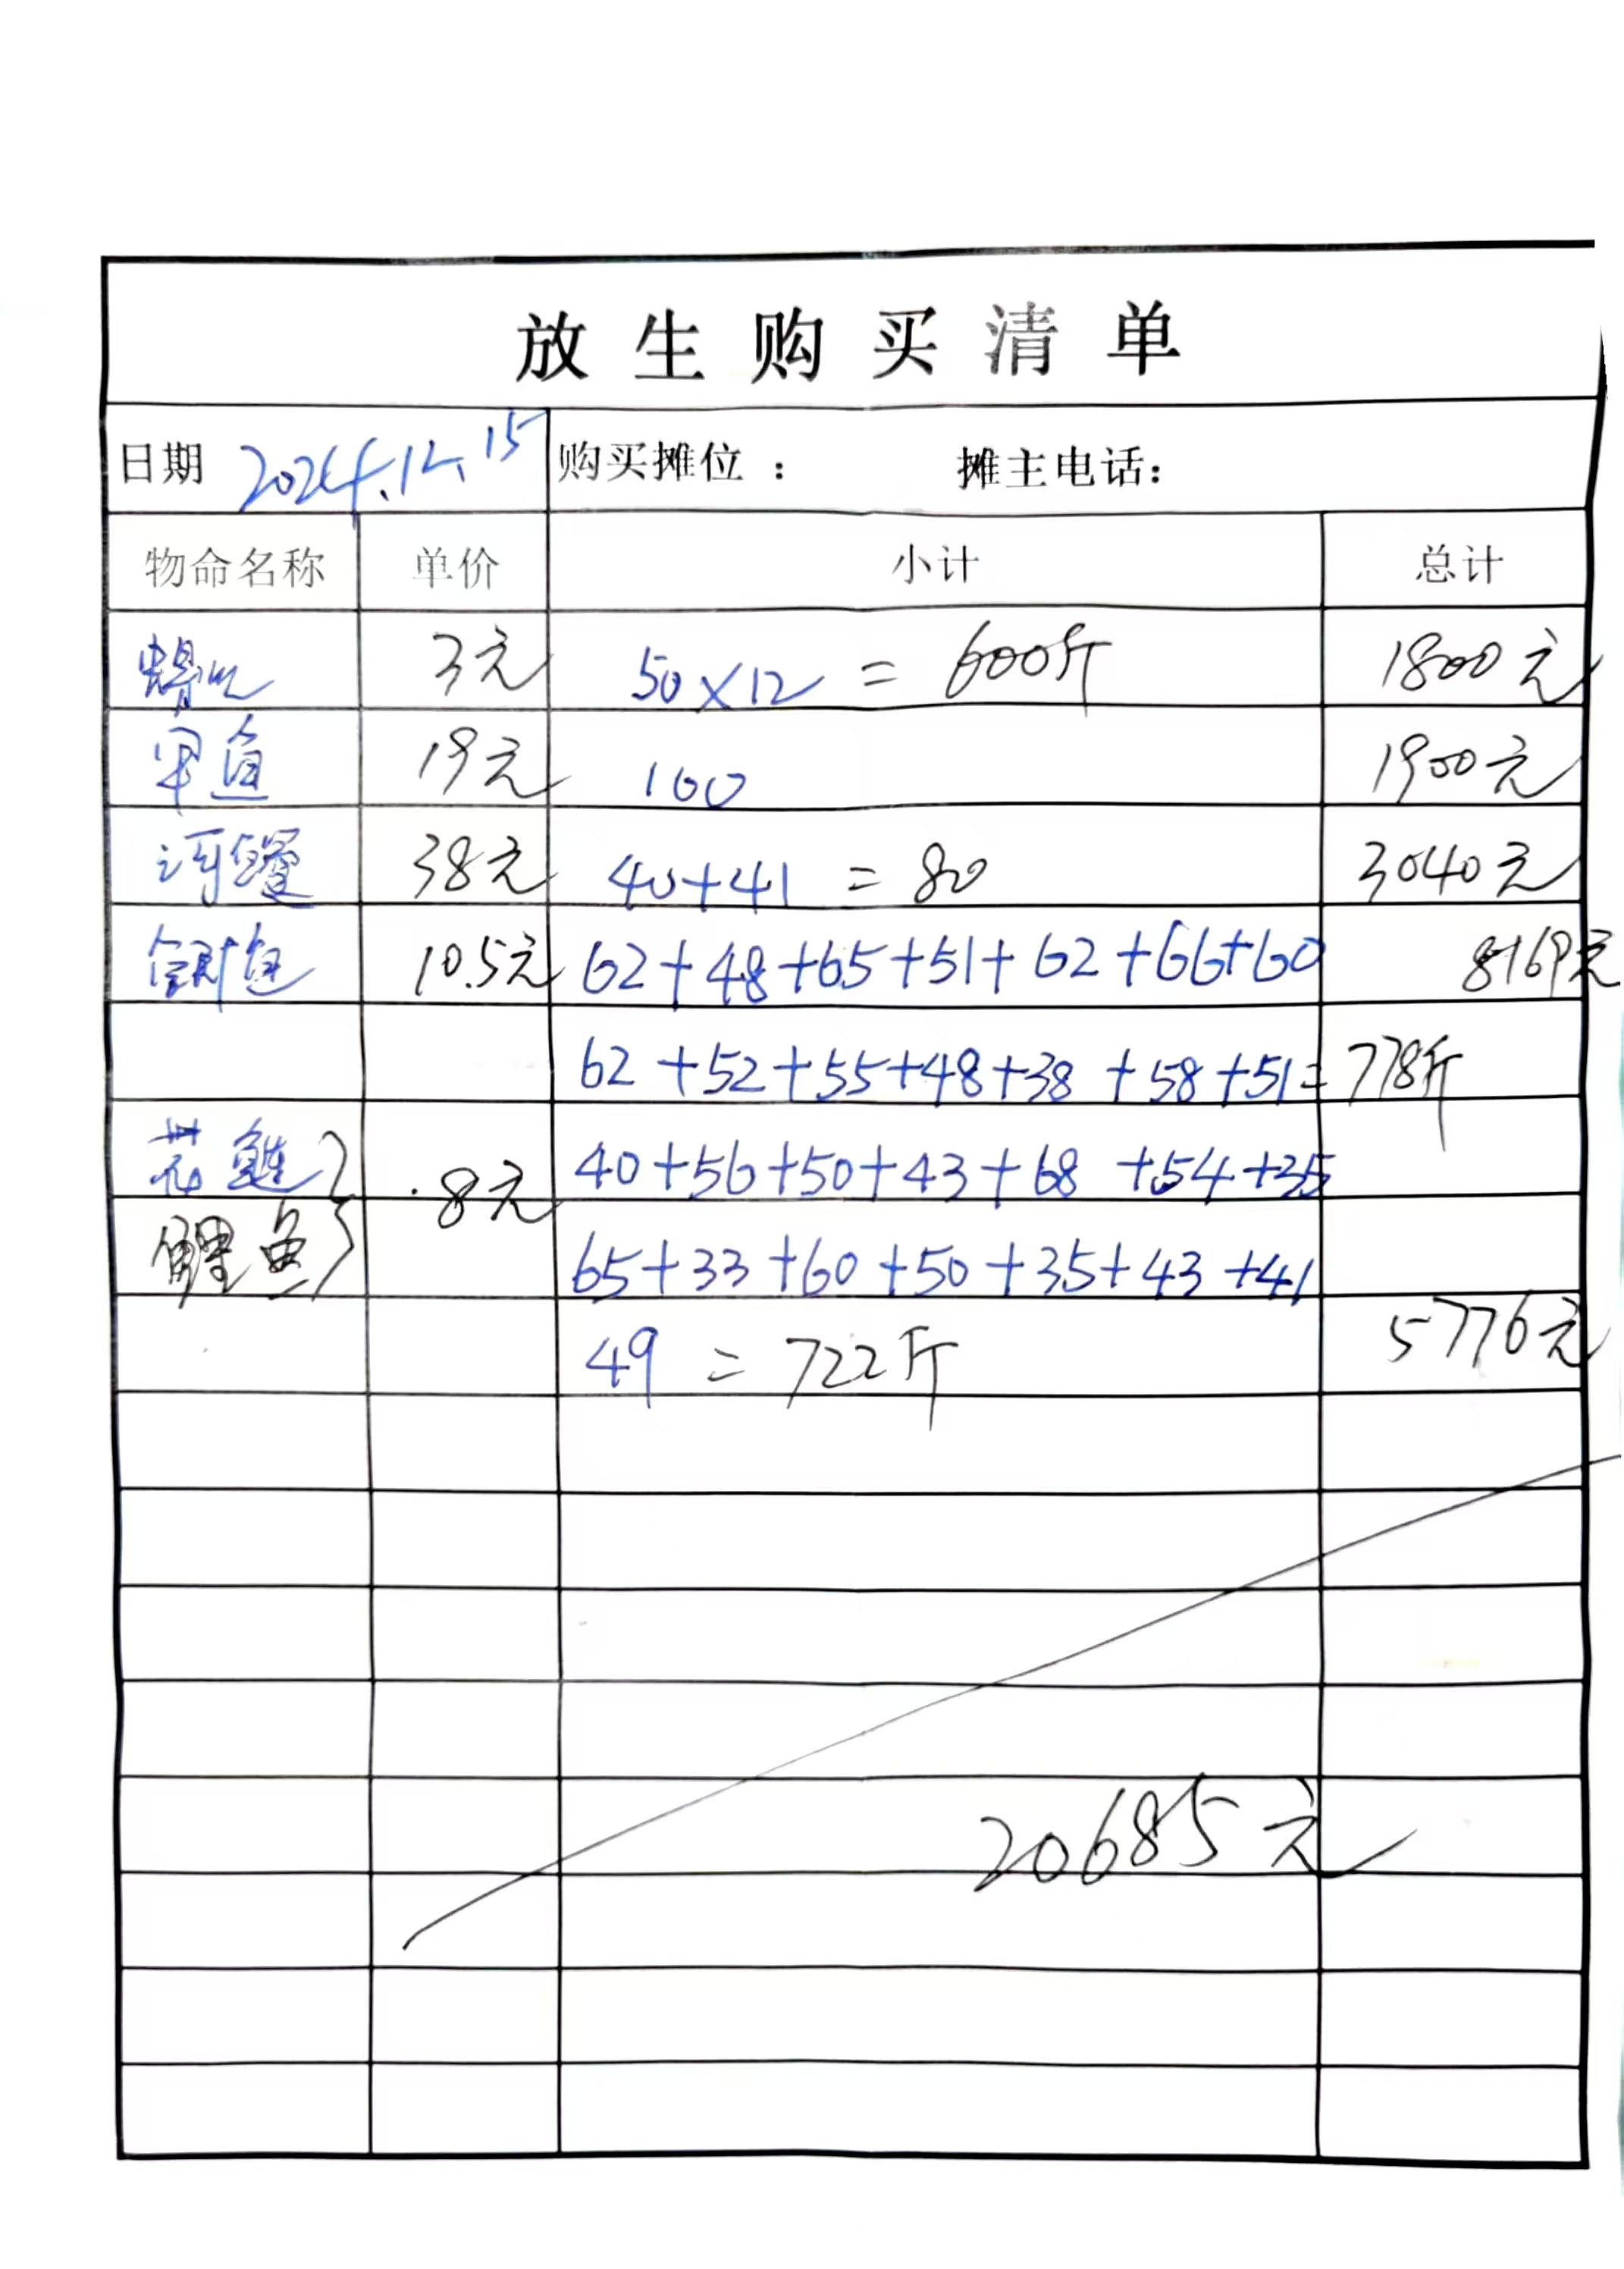 放生购买清单
日期 2024.12.15 购买摊位： 摊主电话：
物命名称 单价 小计 总计
3元 50×12 = 600斤 1800元
甲鱼 19元 100 1900元
河鳗 38元 40+41 = 80 3040元
10.5元 62+48+65+51+62+66+60 8169元
62+52+55+48+38+58+51= 778斤
花鲢 40+56+50+43+68+54+35
8元
鲤鱼 65+33+60+50+35+43+41
49 = 722斤 5776元
20685元